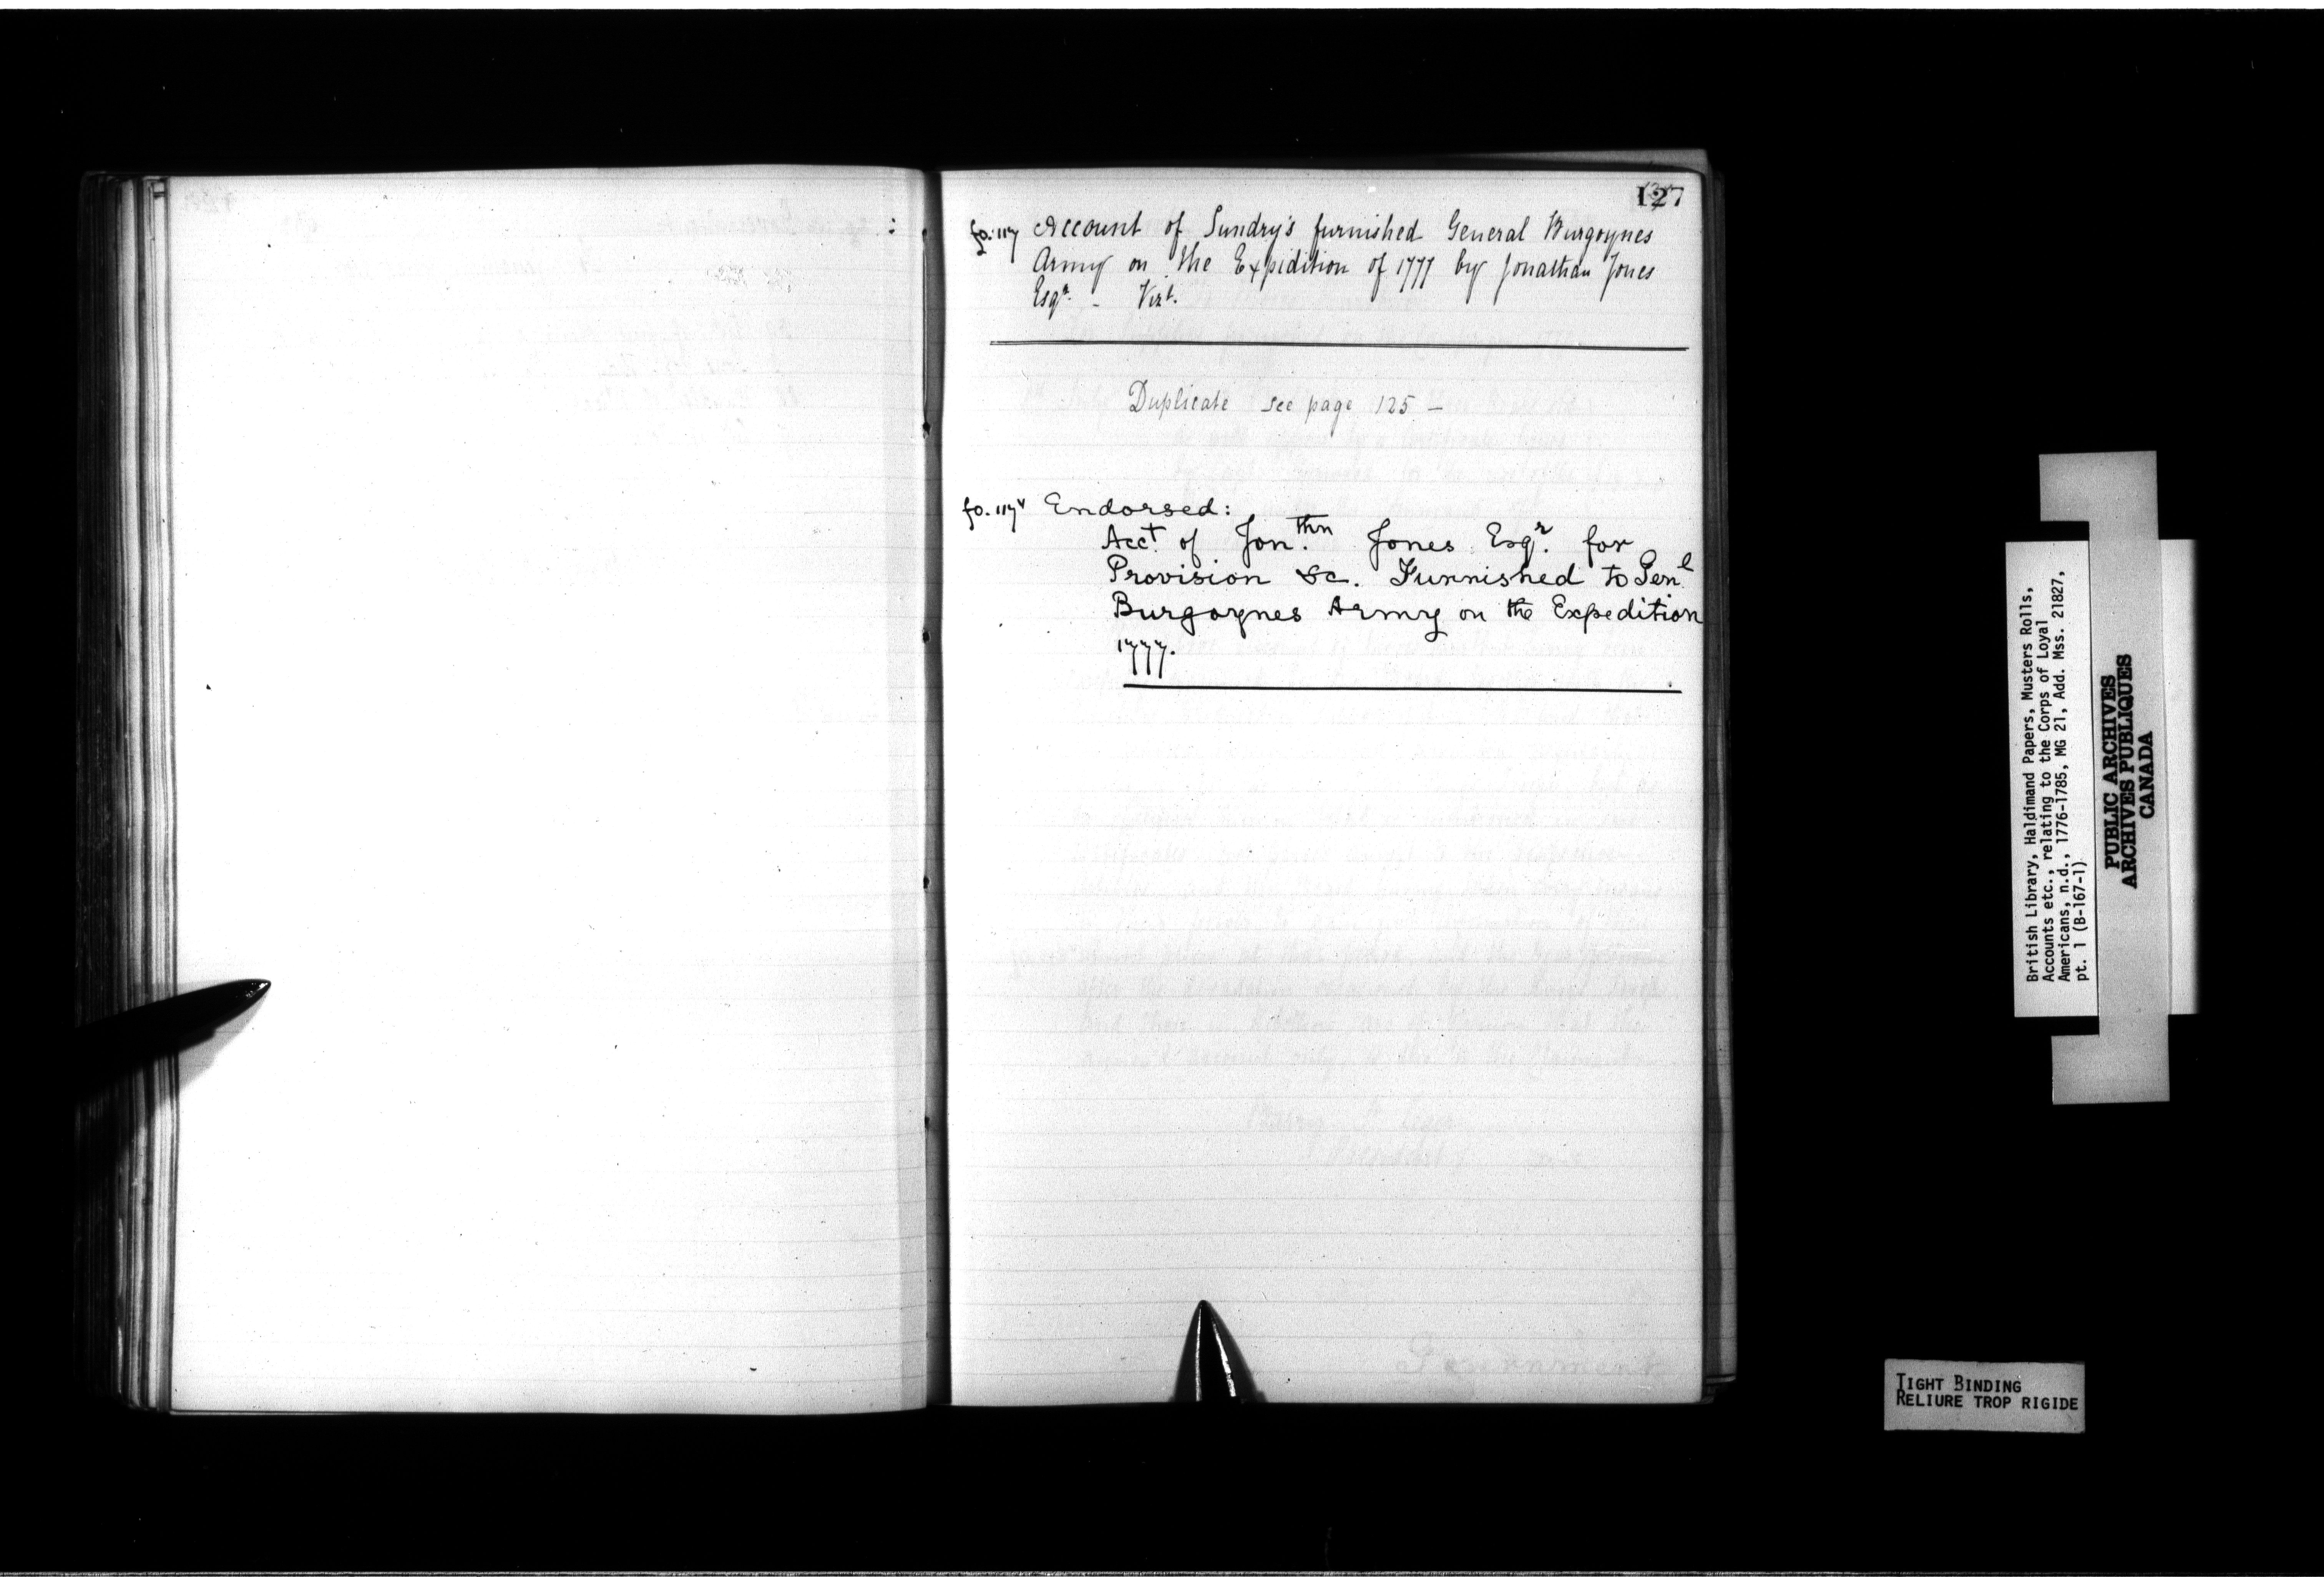 127
fo. 117 Account of Sundry's furnished General Burgoynes
Army on the Expidition of 1777 by Jonathan Jones
Esqr. - Vizt.
Duplicate see page 125 -
fo. 117v Endorsed:
Acct. of Jon.thn Jones Esqr. for
Provision &c. Furnished to Genl
Burgoynes Army on the Expedition
1777.
British Library, Haldimand Papers, Musters Rolls,
Accounts etc., relating to the Corps of Loyal
Americans, n.d., 1776-1785, MG 21, Add. Mss. 21827,
pt. 1 (B-167-1)
PUBLIC ARCHIVES
ARCHIVES PUBLIQUES
CANADA
TIGHT BINDING
RELIURE TROP RIGIDE